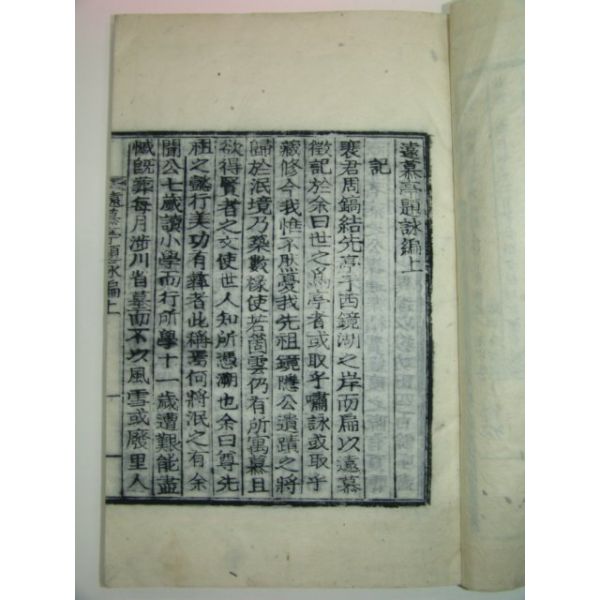 遠慕亭題詠編上
記
裵君周鎬結先亭于西鏡湖之岸而扁以遠慕
徵記於余曰世之爲亭者或取乎嘯詠或取乎
藏修今我惟不然憂我先祖鏡隱公遺蹟之將
歸於泯境乃築數椽使若雲仍有所寓慕且
欲得賢者之文使世人知所憑溯也余曰尊先
祖之懿行美功有彛者此稱焉何將泯之有余
聞公七歲讀小學而行所學十一歲遭艱能盡
慽旣葬每月涉川省墓而不以風雪或廢里人
遠慕亭題詠編上
一